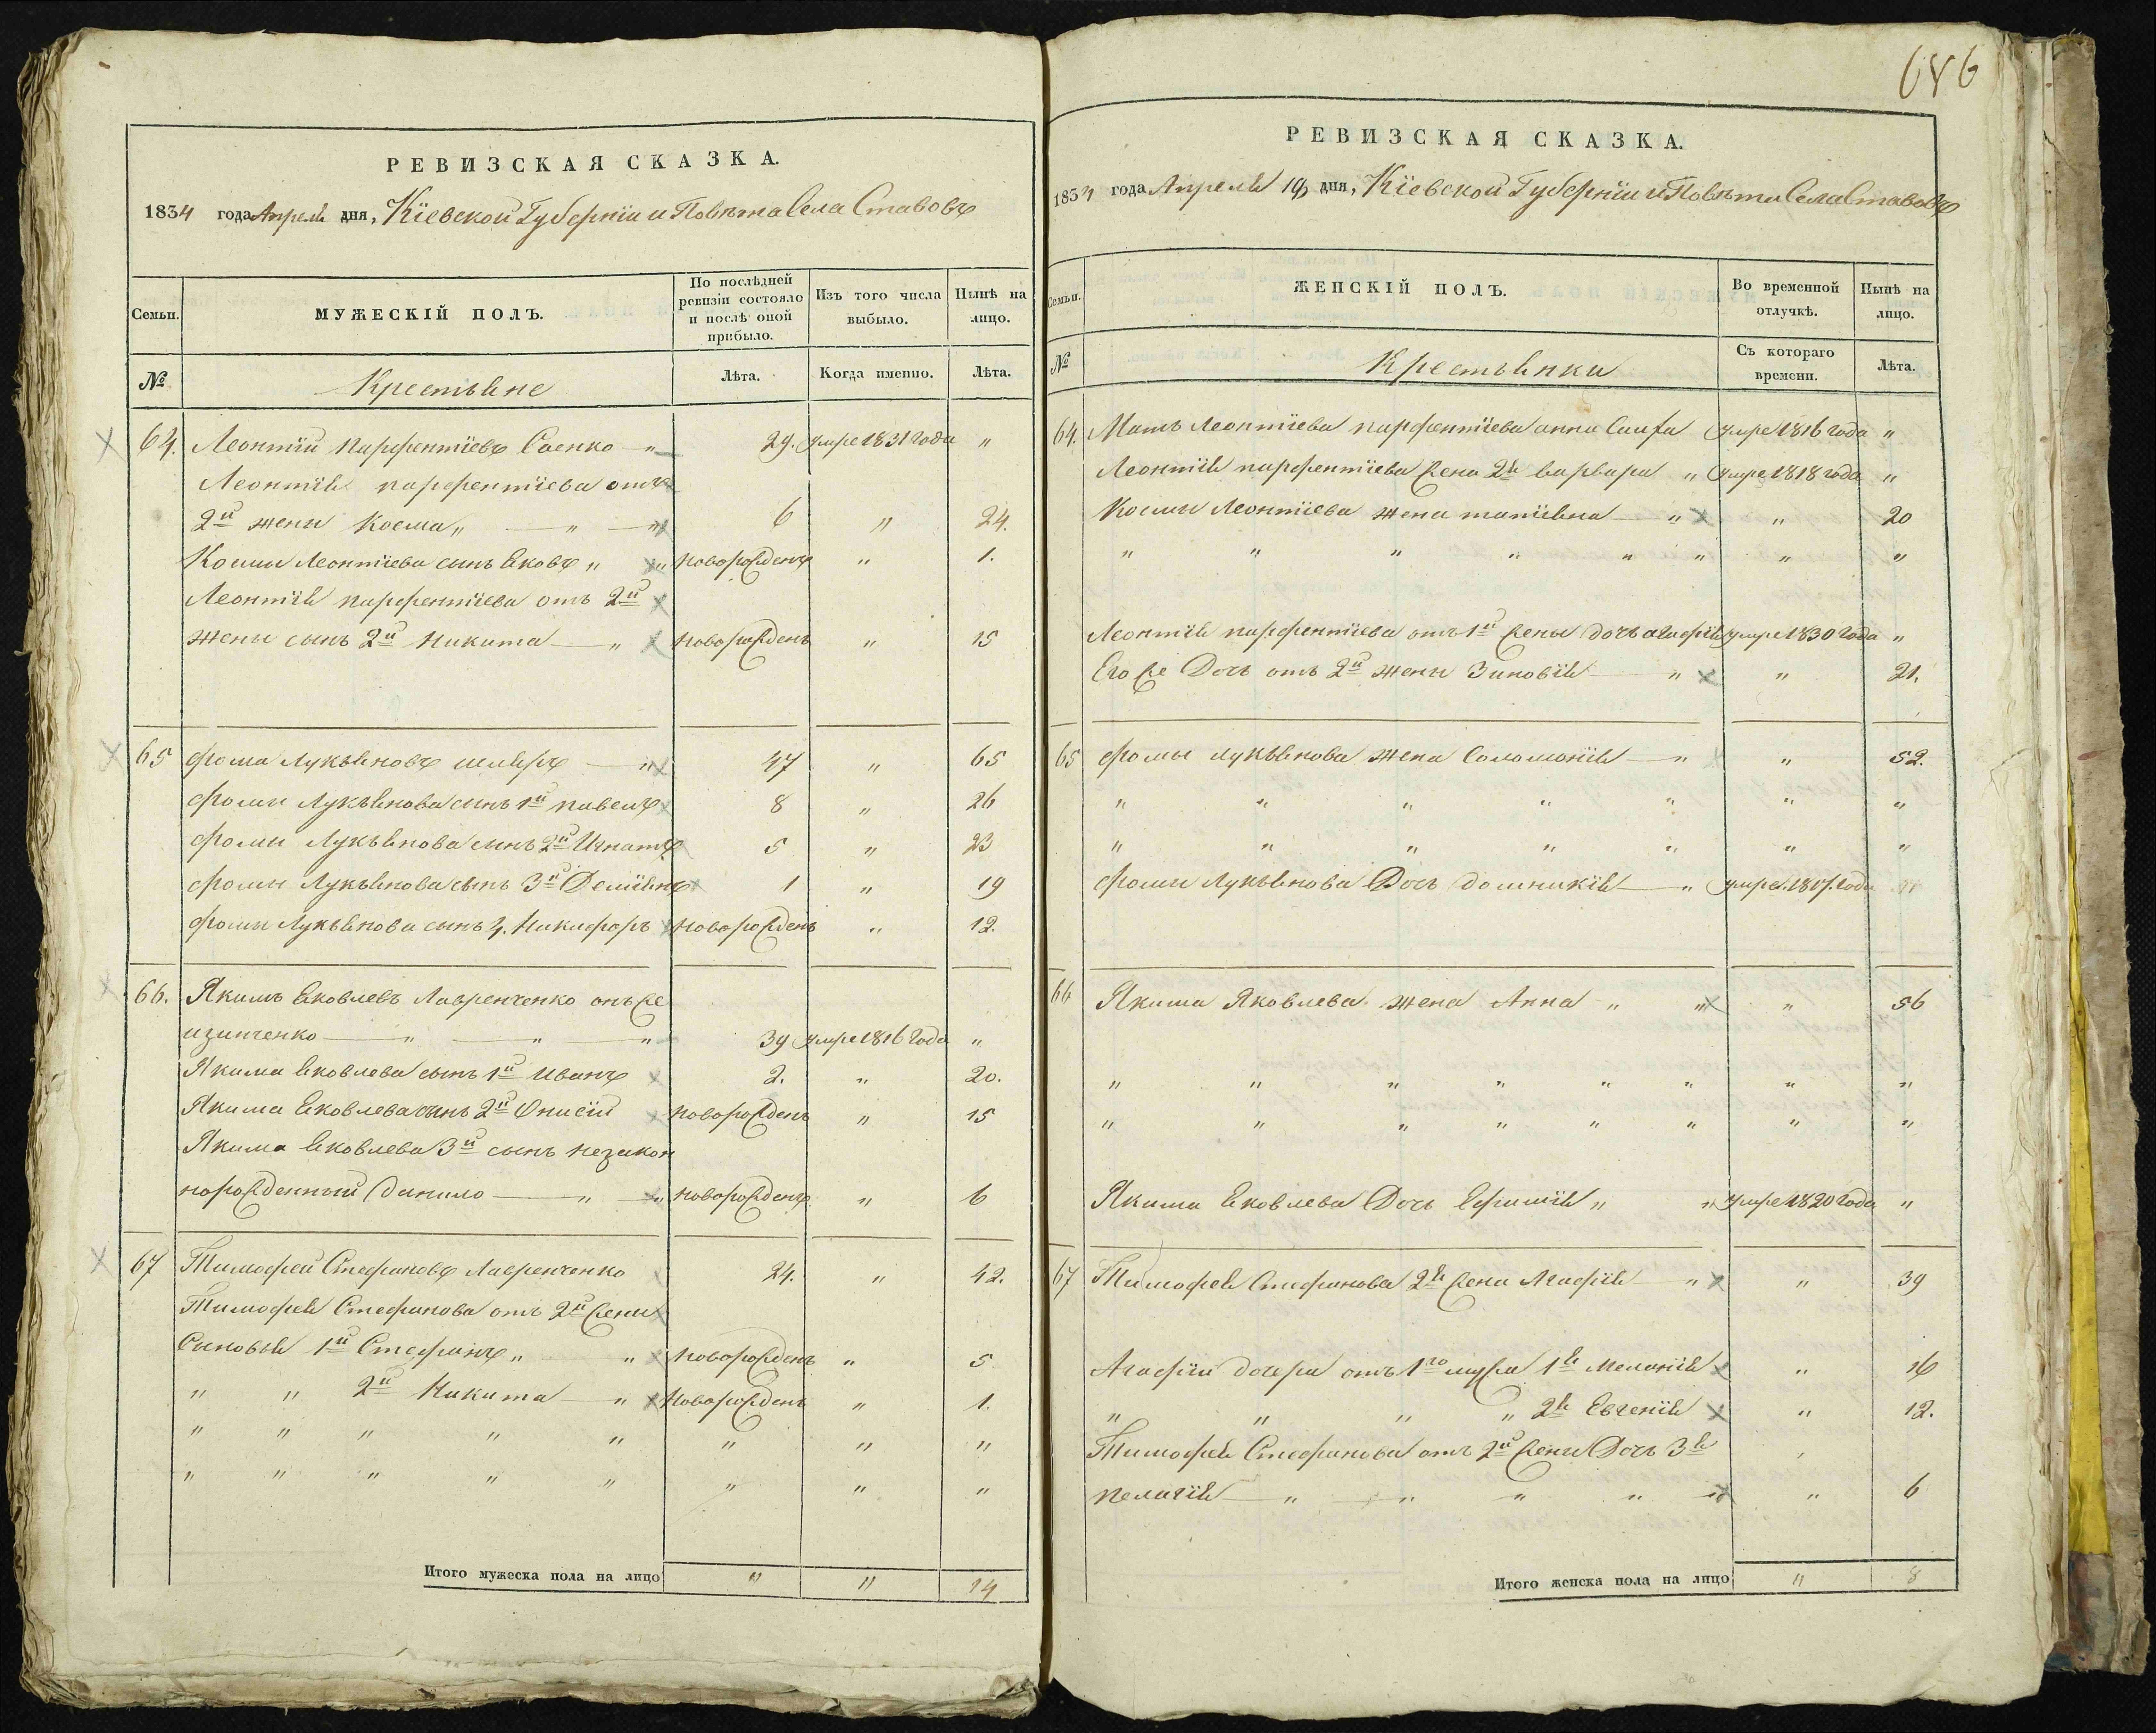 РЕВИЗСКАЯ СКАЗКА.
1834 года Апреля дня, Кіевской Губерніи и Повѣта Села Ставовъ
Семьи.
МУЖЕСКІЙ ПОЛЪ.
По послѣдней ревизіи состояло и послѣ оной прибыло.
Изъ того числа выбыло.
Нынѣ на лицо.
№
Крестьяне
Лѣта.
Когда именно.
Лѣта.
64. Леонтій парфентіевъ Саенко — " 29. умре 1831 года "
Леонтія парфентіева отъ
2й жены Косма " — " — " 6 " 24.
Космы Леонтіева сынъ Яковъ " " новорожденъ " 1.
Леонтія парфентіева отъ 2й
жены сынъ 2й Никита — " новорожденъ " 15
65 фома Лукьяновъ шляръ — " 47 " 65
фомы Лукьянова сынъ 1й павелъ 8 " 26
фомы Лукьянова сынъ 2й Игнатъ 5 " 23
фомы Лукьянова сынъ 3й Деміянъ 1 " 19
фомы Лукьянова сынъ 4. Никифоръ новорожденъ " 12.
66. Якимъ Яковлевъ Лавренченко онъ же
— " — " — " 39 умре 1816 года "
Якима Яковлева сынъ 1й Иванъ 2. " 20.
Якима Яковлева сынъ 2й Онисій новорожденъ " 15
Якима Яковлева 3й сынъ незакон
норожденный Данило — " — " новорожденъ " 6
67 Тимофей Стефановъ Лавренченко 24. " 42.
Тимофея Стефанова отъ 2й жены
Сыновья 1й Стефанъ " " новорожденъ " 5
" " 2й Никита — " Новорожденъ " 1.
" " " " " " " "
" " " " " " " "
Итого мужеска пола на лицо " " 14
686
РЕВИЗСКАЯ СКАЗКА.
1834 года Апреля 19 дня, Кіевской Губерніи и Повѣта Села Ставовъ
Семьи.
ЖЕНСКІЙ ПОЛЪ.
Во временной отлучкѣ.
Нынѣ на лицо.
№
Крестьянки
Съ котораго времени.
Лѣта.
64. Мать Леонтіева парфентіева анна умре 1816 года "
Леонтія парфентіева жена 2я варвара " умре 1818 года "
Космы Леонтіева жена татіяна — " " 20
" " " " " " " "
Леонтія парфентіева отъ 1й жены дочь агафія умре 1830 года "
Его же Дочь отъ 2й жены Зиновія — " " 21.
65 фомы лукьянова жена Соломонія — " " 52.
" " " " " " "
" " " " " " "
фомы Лукьянова Дочь домникія — " умре 1817. года "
66 Якима Яковлева жена Анна " " " 56
" " " " " " " "
" " " " " " " "
Якима Яковлева Дочь Ефимія " " умре 1820 года "
67 Тимофея Стефанова 2я жена Агафія — " " 39
Агафіи дочери отъ 1го мужа 1я Меланія " 16
" " " " 2я Евгенія " 12.
Тимофея Стефанова отъ 2й жены Дочь 3я
пелагія — " — " " " " " 6
Итого женска пола на лицо " 8